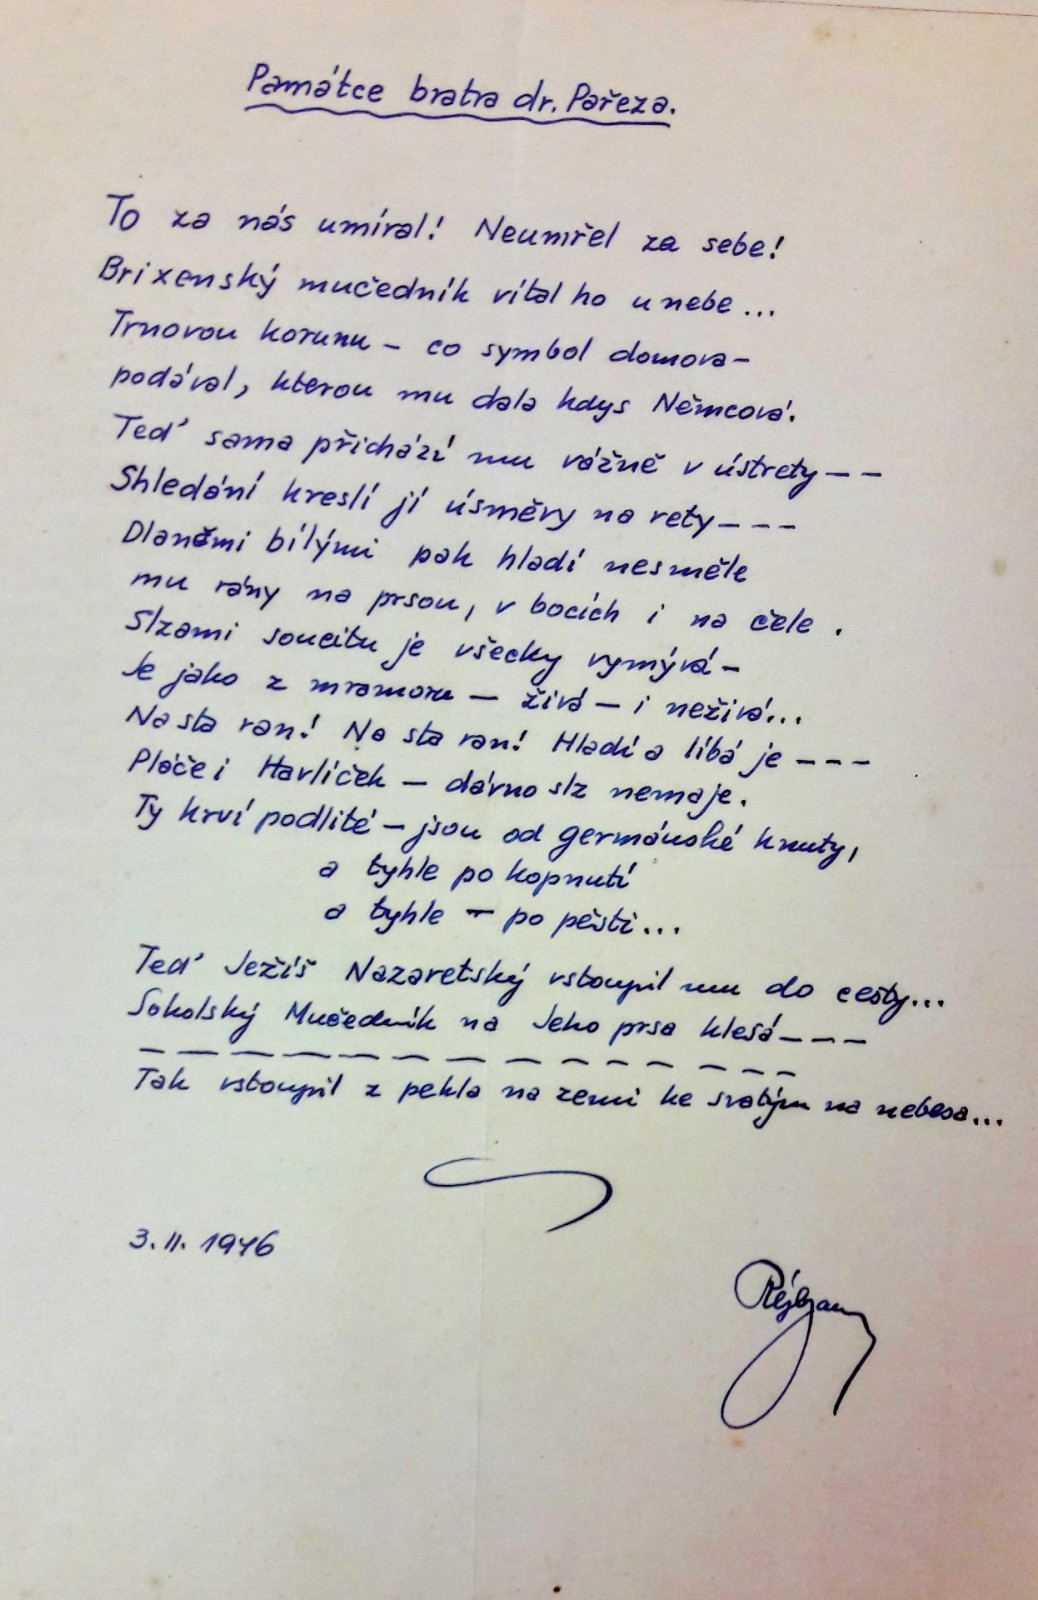 Památce bratra dr. Pařeza.
To za nás umíral! Neumřel za sebe!
Brixenský mučedník vítal ho u nebe...
Trnovou korunu – co symbol domova –
podával, kterou mu dala kdys Němcová.
Teď sama přichází mu vážně v ústrety – –
Shledání kreslí jí úsměvy na rety – – –
Dlaněmi bílými pak hladí nesměle
mu rány na prsou, v bocích i na čele.
Slzami soucitu je všecky vymývá –
Je jako z mramoru – živá – i neživá...
Na sta ran! Na sta ran! Hladí a líbá je – – –
Pláče i Havlíček – dávno slz nemaje.
Ty krví podlité – jsou od germánské knuty,
a tyhle po kopnutí
a tyhle – po pěsti...
Teď Ježíš Nazaretský vstoupil mu do cesty...
Sokolský Mučedník na Jeho prsa klesá – – –
– – – – – – – – – – – – – –
Tak vstoupil z pekla na zemi ke svatým na nebesa...
3. II. 1946